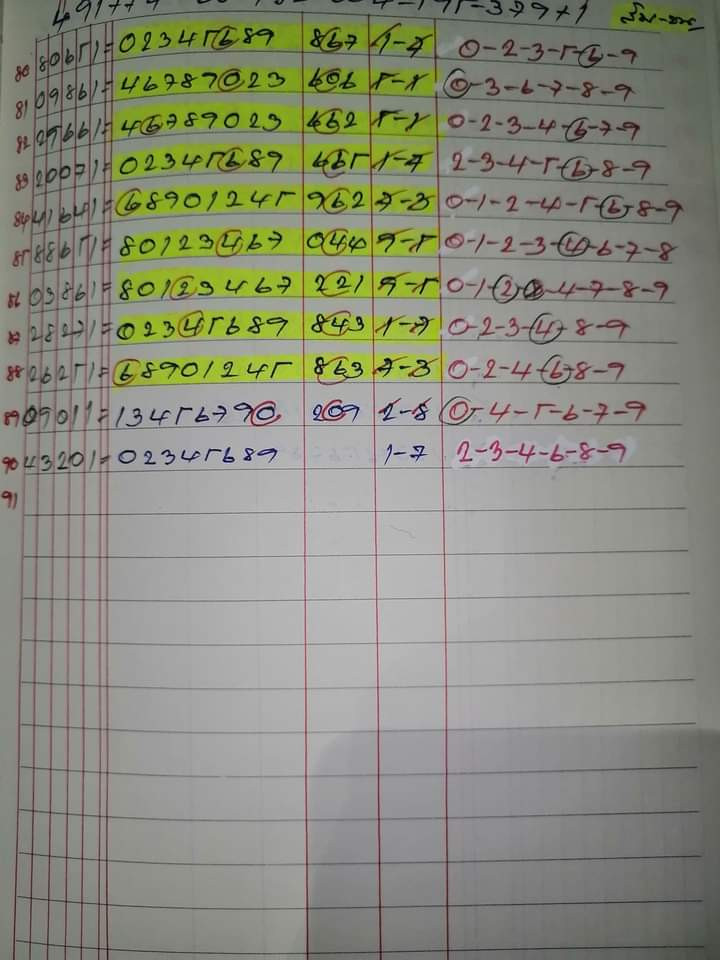 80 8065 1 = 02345689 867 1-7 0-2-3-5-6-9
81 0986 1 = 46789023 606 5-1 0-3-6-7-8-9
82 2966 1 = 46789023 462 5-1 0-2-3-4-6-7-9
83 2007 1 = 02345689 465 1-7 2-3-4-5-6-8-9
84 4164 1 = 68901245 962 7-3 0-1-2-4-5-6-8-9
85 8865 1 = 80123467 044 9-5 0-1-2-3-4-6-7-8
86 0386 1 = 80123467 221 9-5 0-1-2-4-7-8-9
87 2827 1 = 02345689 843 1-7 0-2-3-4-8-9
88 2625 1 = 68901245 863 7-3 0-2-4-6-8-9
89 0901 1 = 13456790 209 2-8 0-4-5-6-7-9
90 4320 1 = 02345689 1-7 2-3-4-6-8-9
91